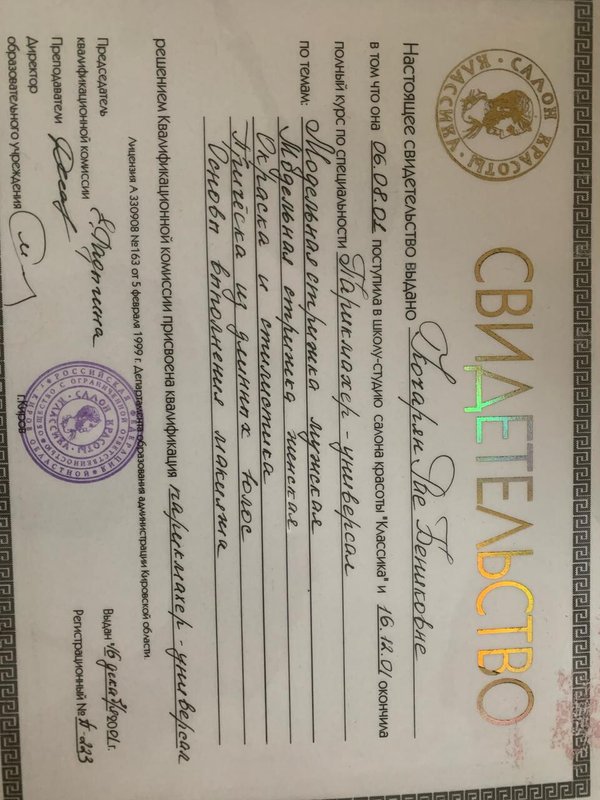 САЛОН КРАСОТЫ • КЛАССИКА •
СВИДЕТЕЛЬСТВО
Настоящее свидетельство выдано Кочарян Рае Бениковне
в том что она 06.08.01 поступила в школу-студию салона красоты "Классика" и 16.12.01 окончила
полный курс по специальности Парикмахер - универсал
по темам: Модельная стрижка мужская
Модельная стрижка женская
Окраска и стилистика
Причёска из длинных волос
Основы выполнения макияжа
решением Квалификационной комиссии присвоена квалификация парикмахер - универсал
Лицензия А 330908 №163 от 5 февраля 1999 г. Департамента образования администрации Кировской области
Председатель
квалификационной комиссии
Преподаватели
Директор
образовательного учреждения
г.Киров
САЛОН КРАСОТЫ КЛАССИКА
Выдан 16 декабря 2001 г.
Регистрационный №